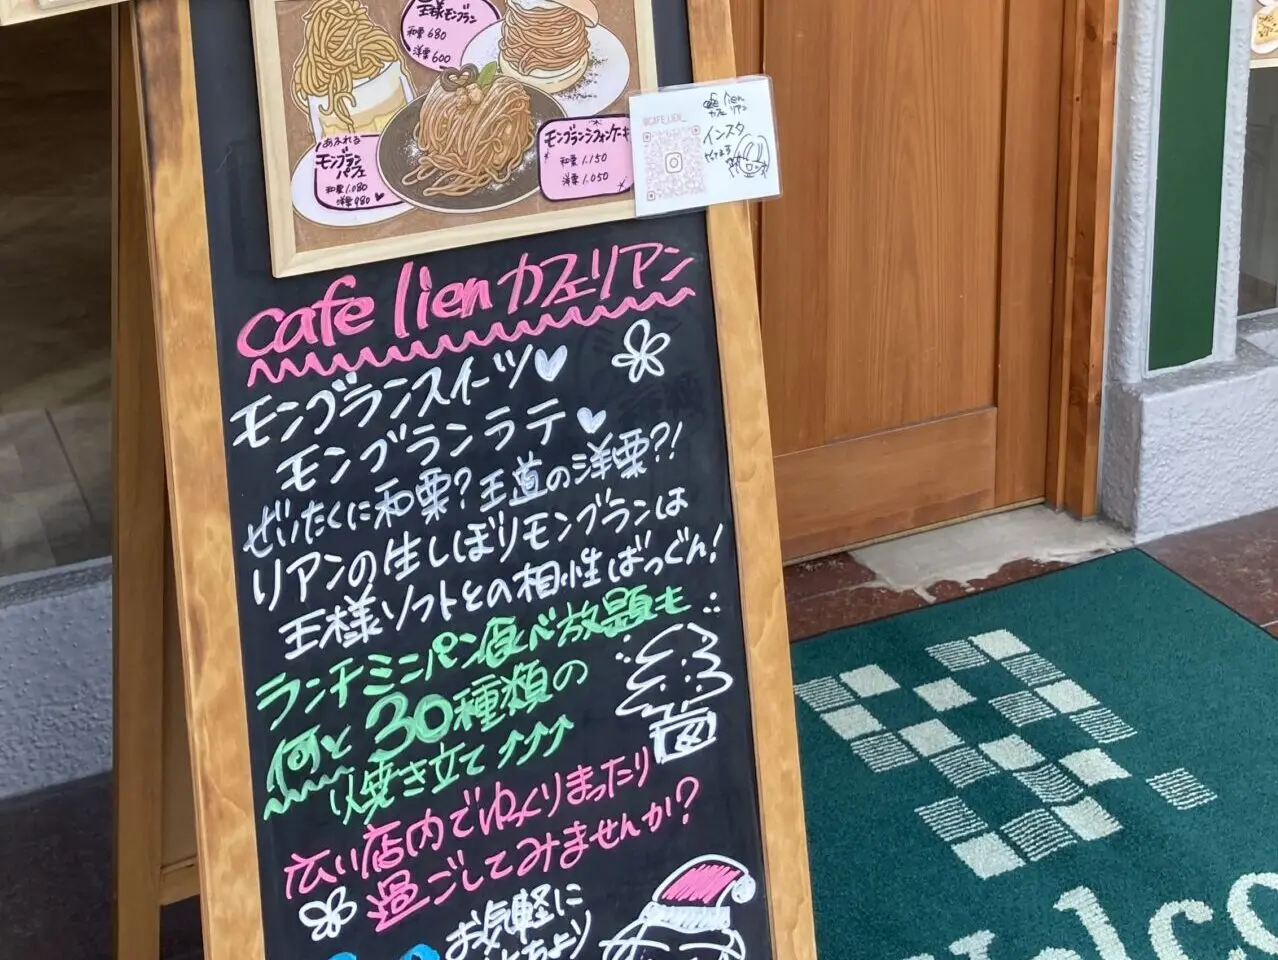 王様モンブラン
和栗 680
洋栗 600
あふれる
モンブラン
パフェ
和栗 1.080
洋栗 980
モンブランシフォンケーキ
和栗 1.150
洋栗 1.050
@CAFE_LIEN_
cafe lien
カフェ リアン
インスタ
やってます
cafe lien カフェリアン
モンブランスイーツ♥
モンブランラテ♥
ぜいたくに和栗?王道の洋栗?!
リアンの生しぼりモンブランは
王様ソフトとの相性ばつぐん!
ランチミニパン食べ放題も
何と30種類の
焼き立て↑↑↑
広い店内でゆっくりまったり
過ごしてみませんか?
お気軽に